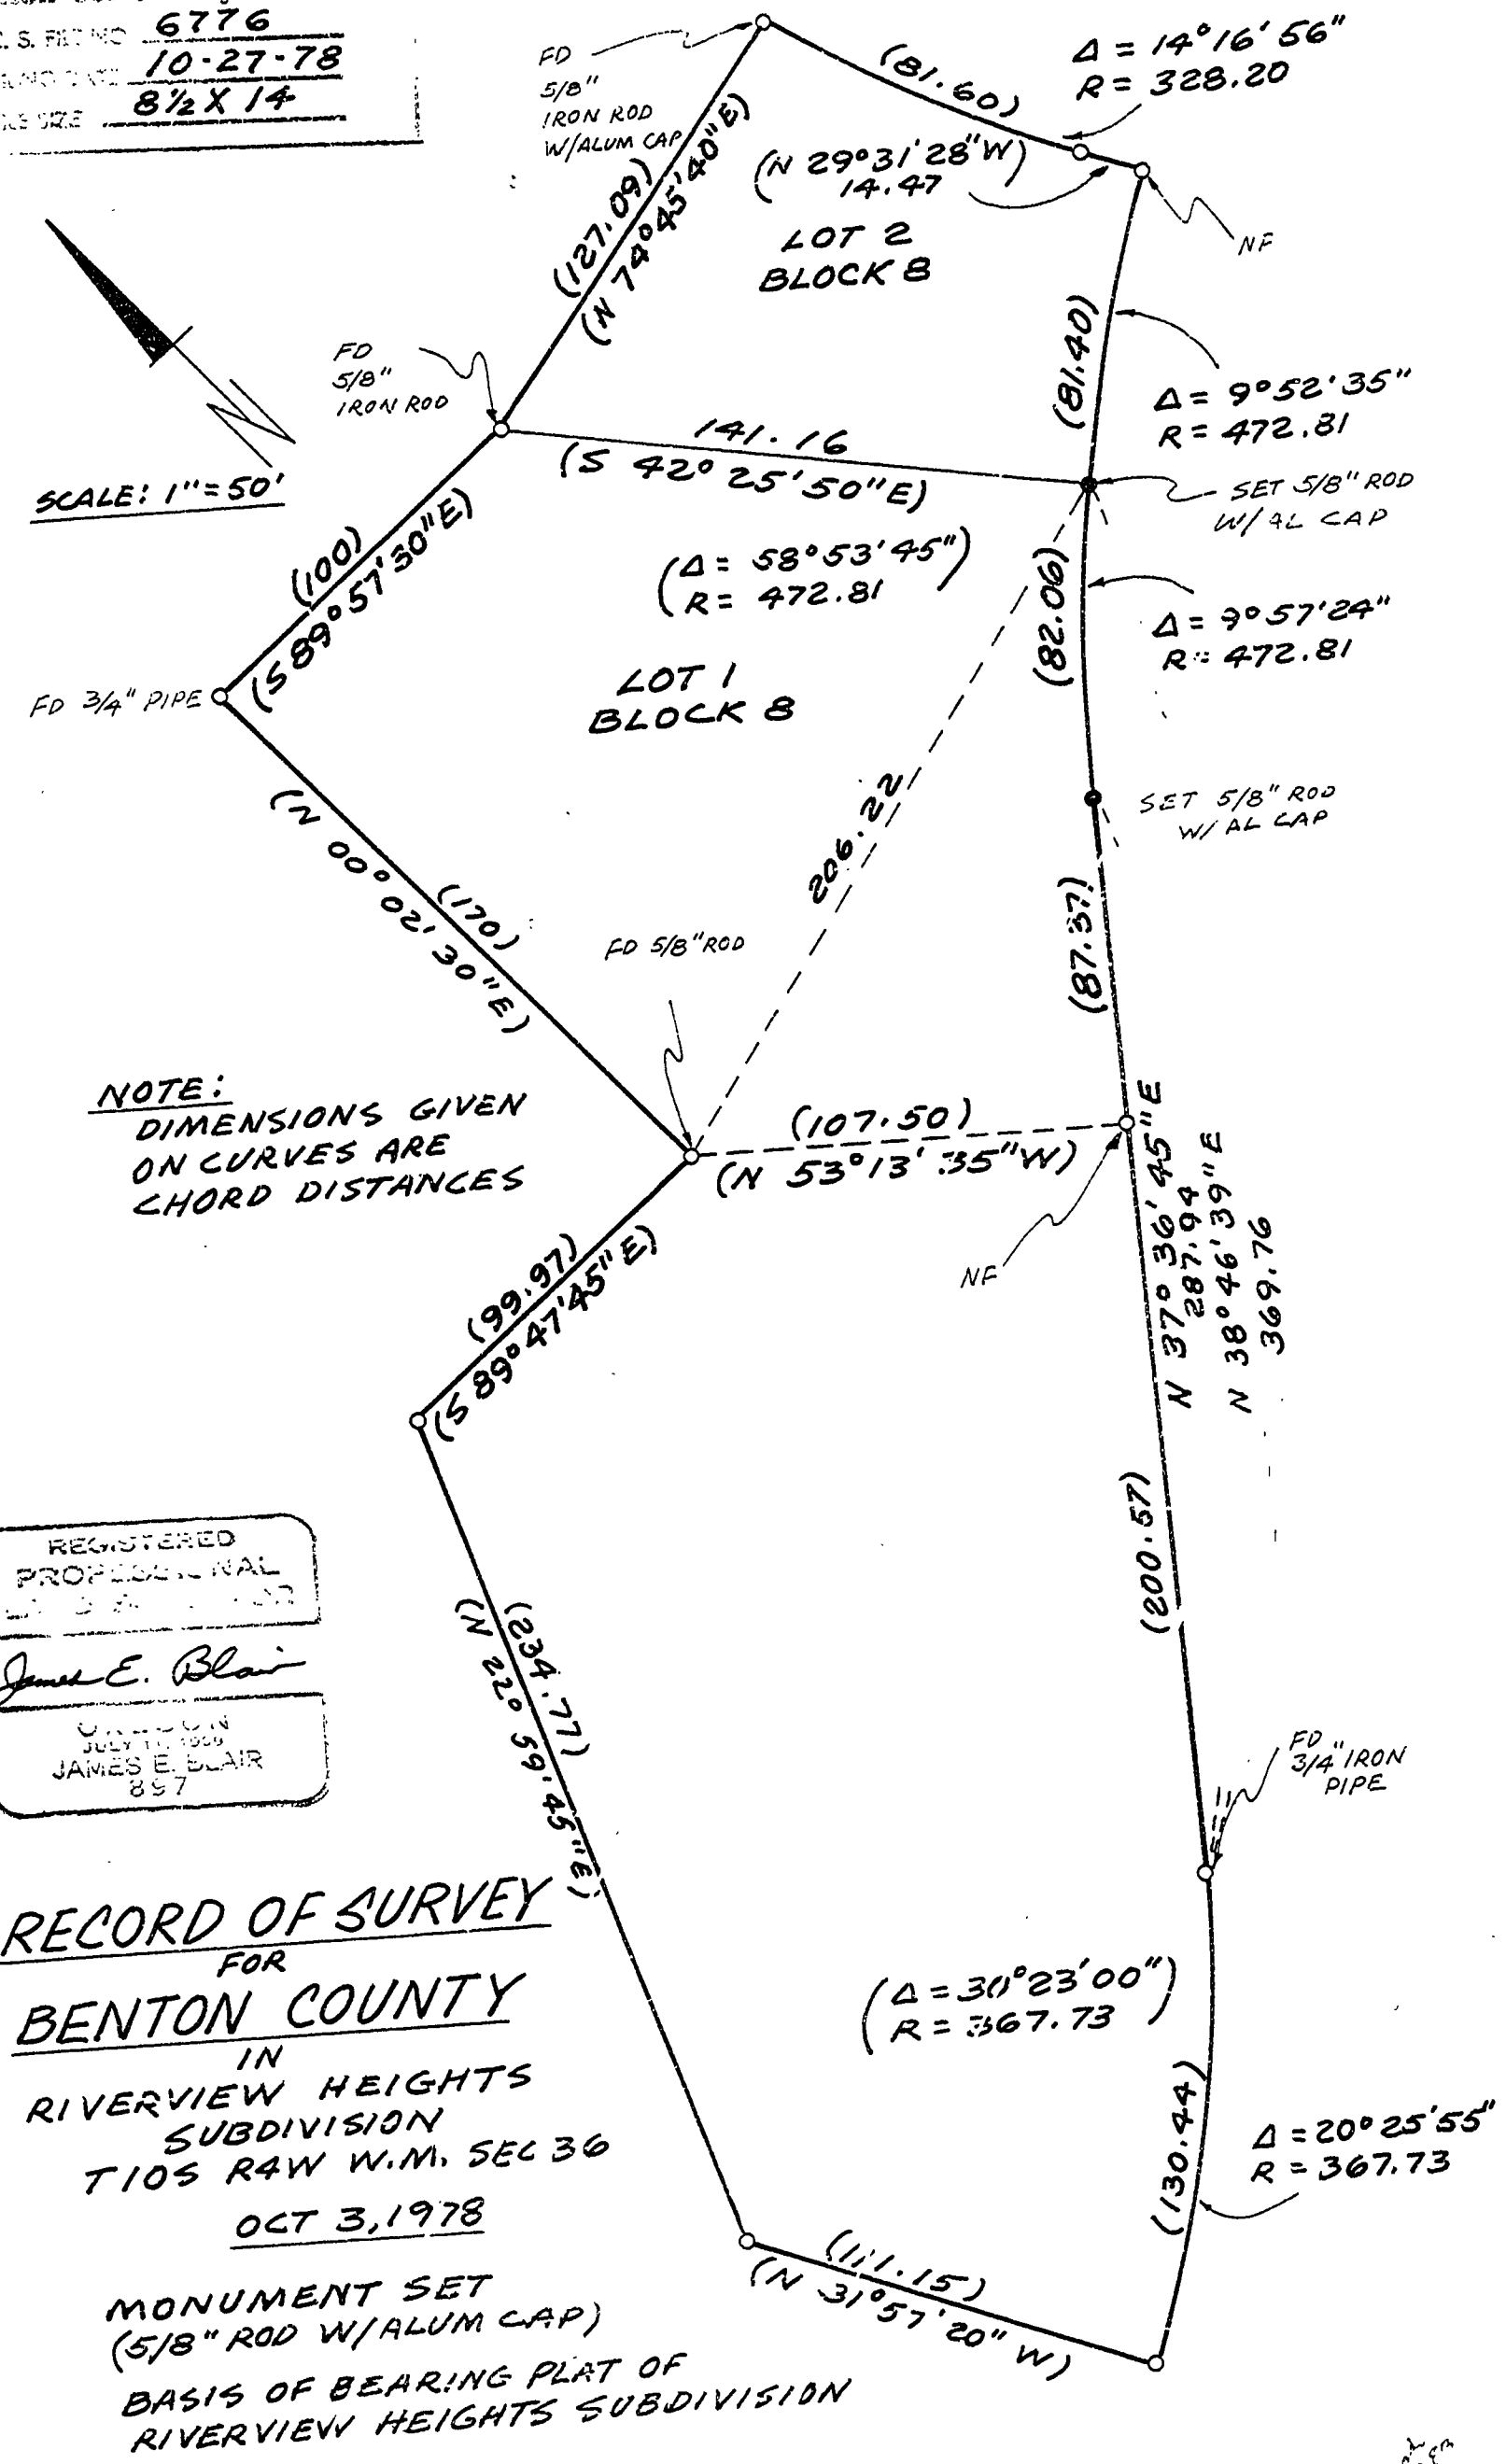 6776
10-27-78
8½ X 14
FD
5/8"
IRON ROD
W/ALUM CAP
(81.60)
Δ = 14°16'56"
R = 328.20
(N 29°31'28"W)
14.47
NF
LOT 2
BLOCK 8
(127.09)
(N 74°45'40"E)
FD
5/8"
IRON ROD
(81.40)
Δ = 9°52'35"
R = 472.81
141.16
(S 42°25'50"E)
SET 5/8" ROD
W/ AL CAP
SCALE: 1"=50'
(100)
(S 89°57'30"E)
(Δ = 58°53'45")
(R = 472.81
(82.06)
Δ = 9°57'24"
R = 472.81
FD 3/4" PIPE
LOT 1
BLOCK 8
206.22
SET 5/8" ROD
W/ AL CAP
(170)
(N 00°02'30"E)
FD 5/8" ROD
(87.37)
NOTE:
DIMENSIONS GIVEN
ON CURVES ARE
CHORD DISTANCES
(107.50)
(N 53°13'35"W)
NF
N 37°36'45"E
287.94
N 38°46'39"E
369.76
(99.97)
(S 89°47'45"E)
(200.57)
REGISTERED
PROFESSIONAL
James E. Blair
OREGON
JULY 11,
JAMES E. BLAIR
897
(234.77)
(N 22°59'45"E)
FD
3/4" IRON
PIPE
RECORD OF SURVEY
FOR
BENTON COUNTY
IN
RIVERVIEW HEIGHTS
SUBDIVISION
T10S R4W W.M. SEC 36
OCT 3, 1978
(Δ = 30°23'00")
(R = 367.73)
(130.44)
Δ = 20°25'55"
R = 367.73
(111.15)
(N 31°57'20" W)
MONUMENT SET
(5/8" ROD W/ALUM CAP)
BASIS OF BEARING PLAT OF
RIVERVIEW HEIGHTS SUBDIVISION